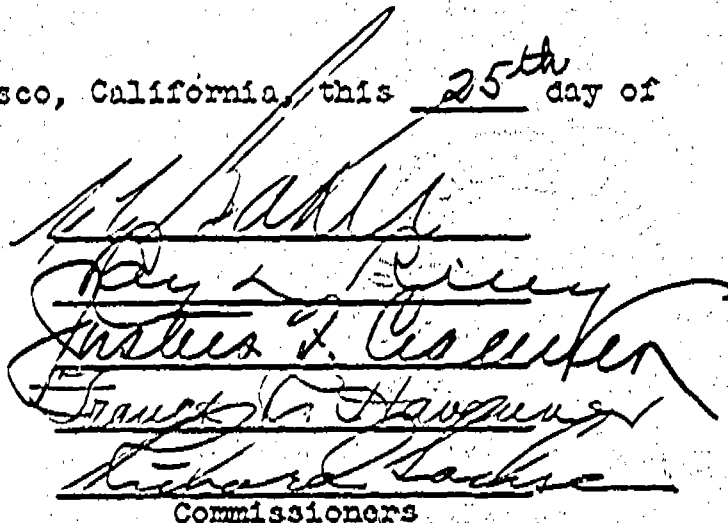 sco, California, this 25th day of
Ray L. Riley
Justus F. Craemer
Francis R. Havenner
Richard Sachse
Commissioners